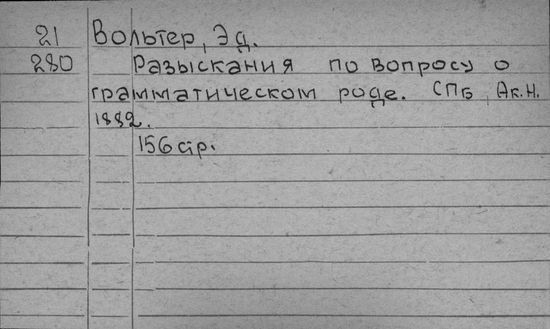 21 Вольтер, Эд.
280 Разыскания по вопросу о
грамматическом роде. СПБ, Ак.Н.
1882.
156 стр.